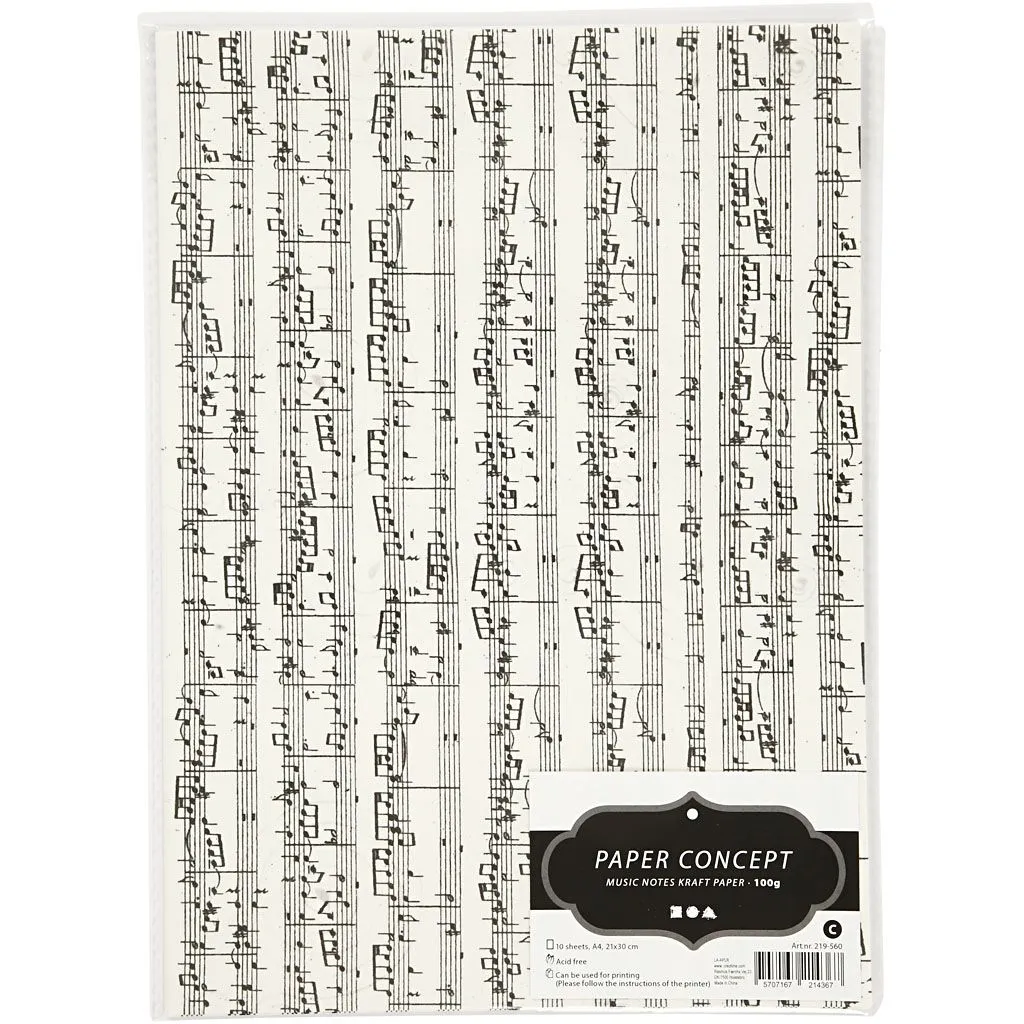 PAPER CONCEPT
MUSIC NOTES KRAFT PAPER · 100g
C
10 sheets, A4, 21x30 cm
Art.nr. 219-560
Acid free
Can be used for printing
(Please follow the instructions of the printer)
Made in China
5707167 214367